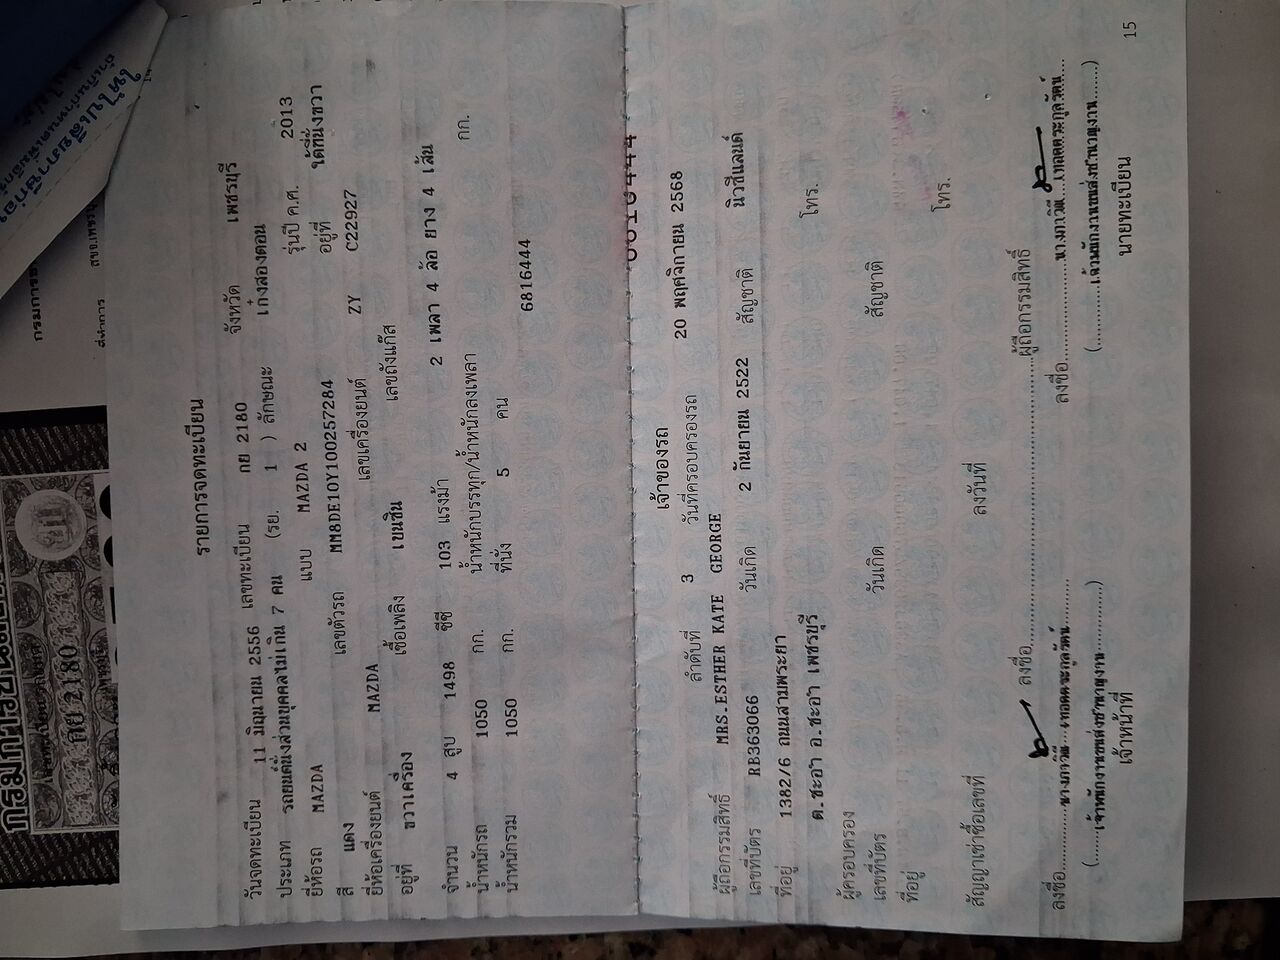 รายการจดทะเบียน
วันจดทะเบียน 11 มิถุนายน 2556 เลขทะเบียน กย 2180 จังหวัด เพชรบุรี
ประเภท รถยนต์นั่งส่วนบุคคลไม่เกิน 7 คน (รย. 1 ) ลักษณะ เก๋งสองตอน
ยี่ห้อรถ MAZDA แบบ MAZDA 2 รุ่นปี ค.ศ. 2013
สี แดง เลขตัวรถ MM8DE10Y100257284 อยู่ที่ ใต้ที่นั่งขวา
ยี่ห้อเครื่องยนต์ MAZDA เลขเครื่องยนต์ ZY C22927
อยู่ที่ ขวาเครื่อง เชื้อเพลิง เบนซิน เลขถังแก๊ส
จำนวน 4 สูบ 1498 ซีซี 103 แรงม้า 2 เพลา 4 ล้อ ยาง 4 เส้น
น้ำหนักรถ 1050 กก. น้ำหนักบรรทุก/น้ำหนักลงเพลา กก.
น้ำหนักรวม 1050 กก. ที่นั่ง 5 คน 6816444
เจ้าของรถ
ลำดับที่ 3 วันที่ครอบครองรถ 20 พฤศจิกายน 2568
ผู้ถือกรรมสิทธิ์ MRS.ESTHER KATE GEORGE
เลขที่บัตร RB363066 วันเกิด 2 กันยายน 2522 สัญชาติ นิวซีแลนด์
ที่อยู่ 1382/6 ถนนสามพระยา
ต.ชะอำ อ.ชะอำ เพชรบุรี โทร.
ผู้ครอบครอง
เลขที่บัตร วันเกิด สัญชาติ
ที่อยู่ โทร.
สัญญาเช่าซื้อเลขที่ ลงวันที่
ลงชื่อ ผู้ถือกรรมสิทธิ์
ลงชื่อ ลงชื่อ
(เจ้าพนักงานขนส่งชำนาญงาน) (เจ้าพนักงานขนส่งชำนาญงาน)
เจ้าหน้าที่ นายทะเบียน
15
กย 2180